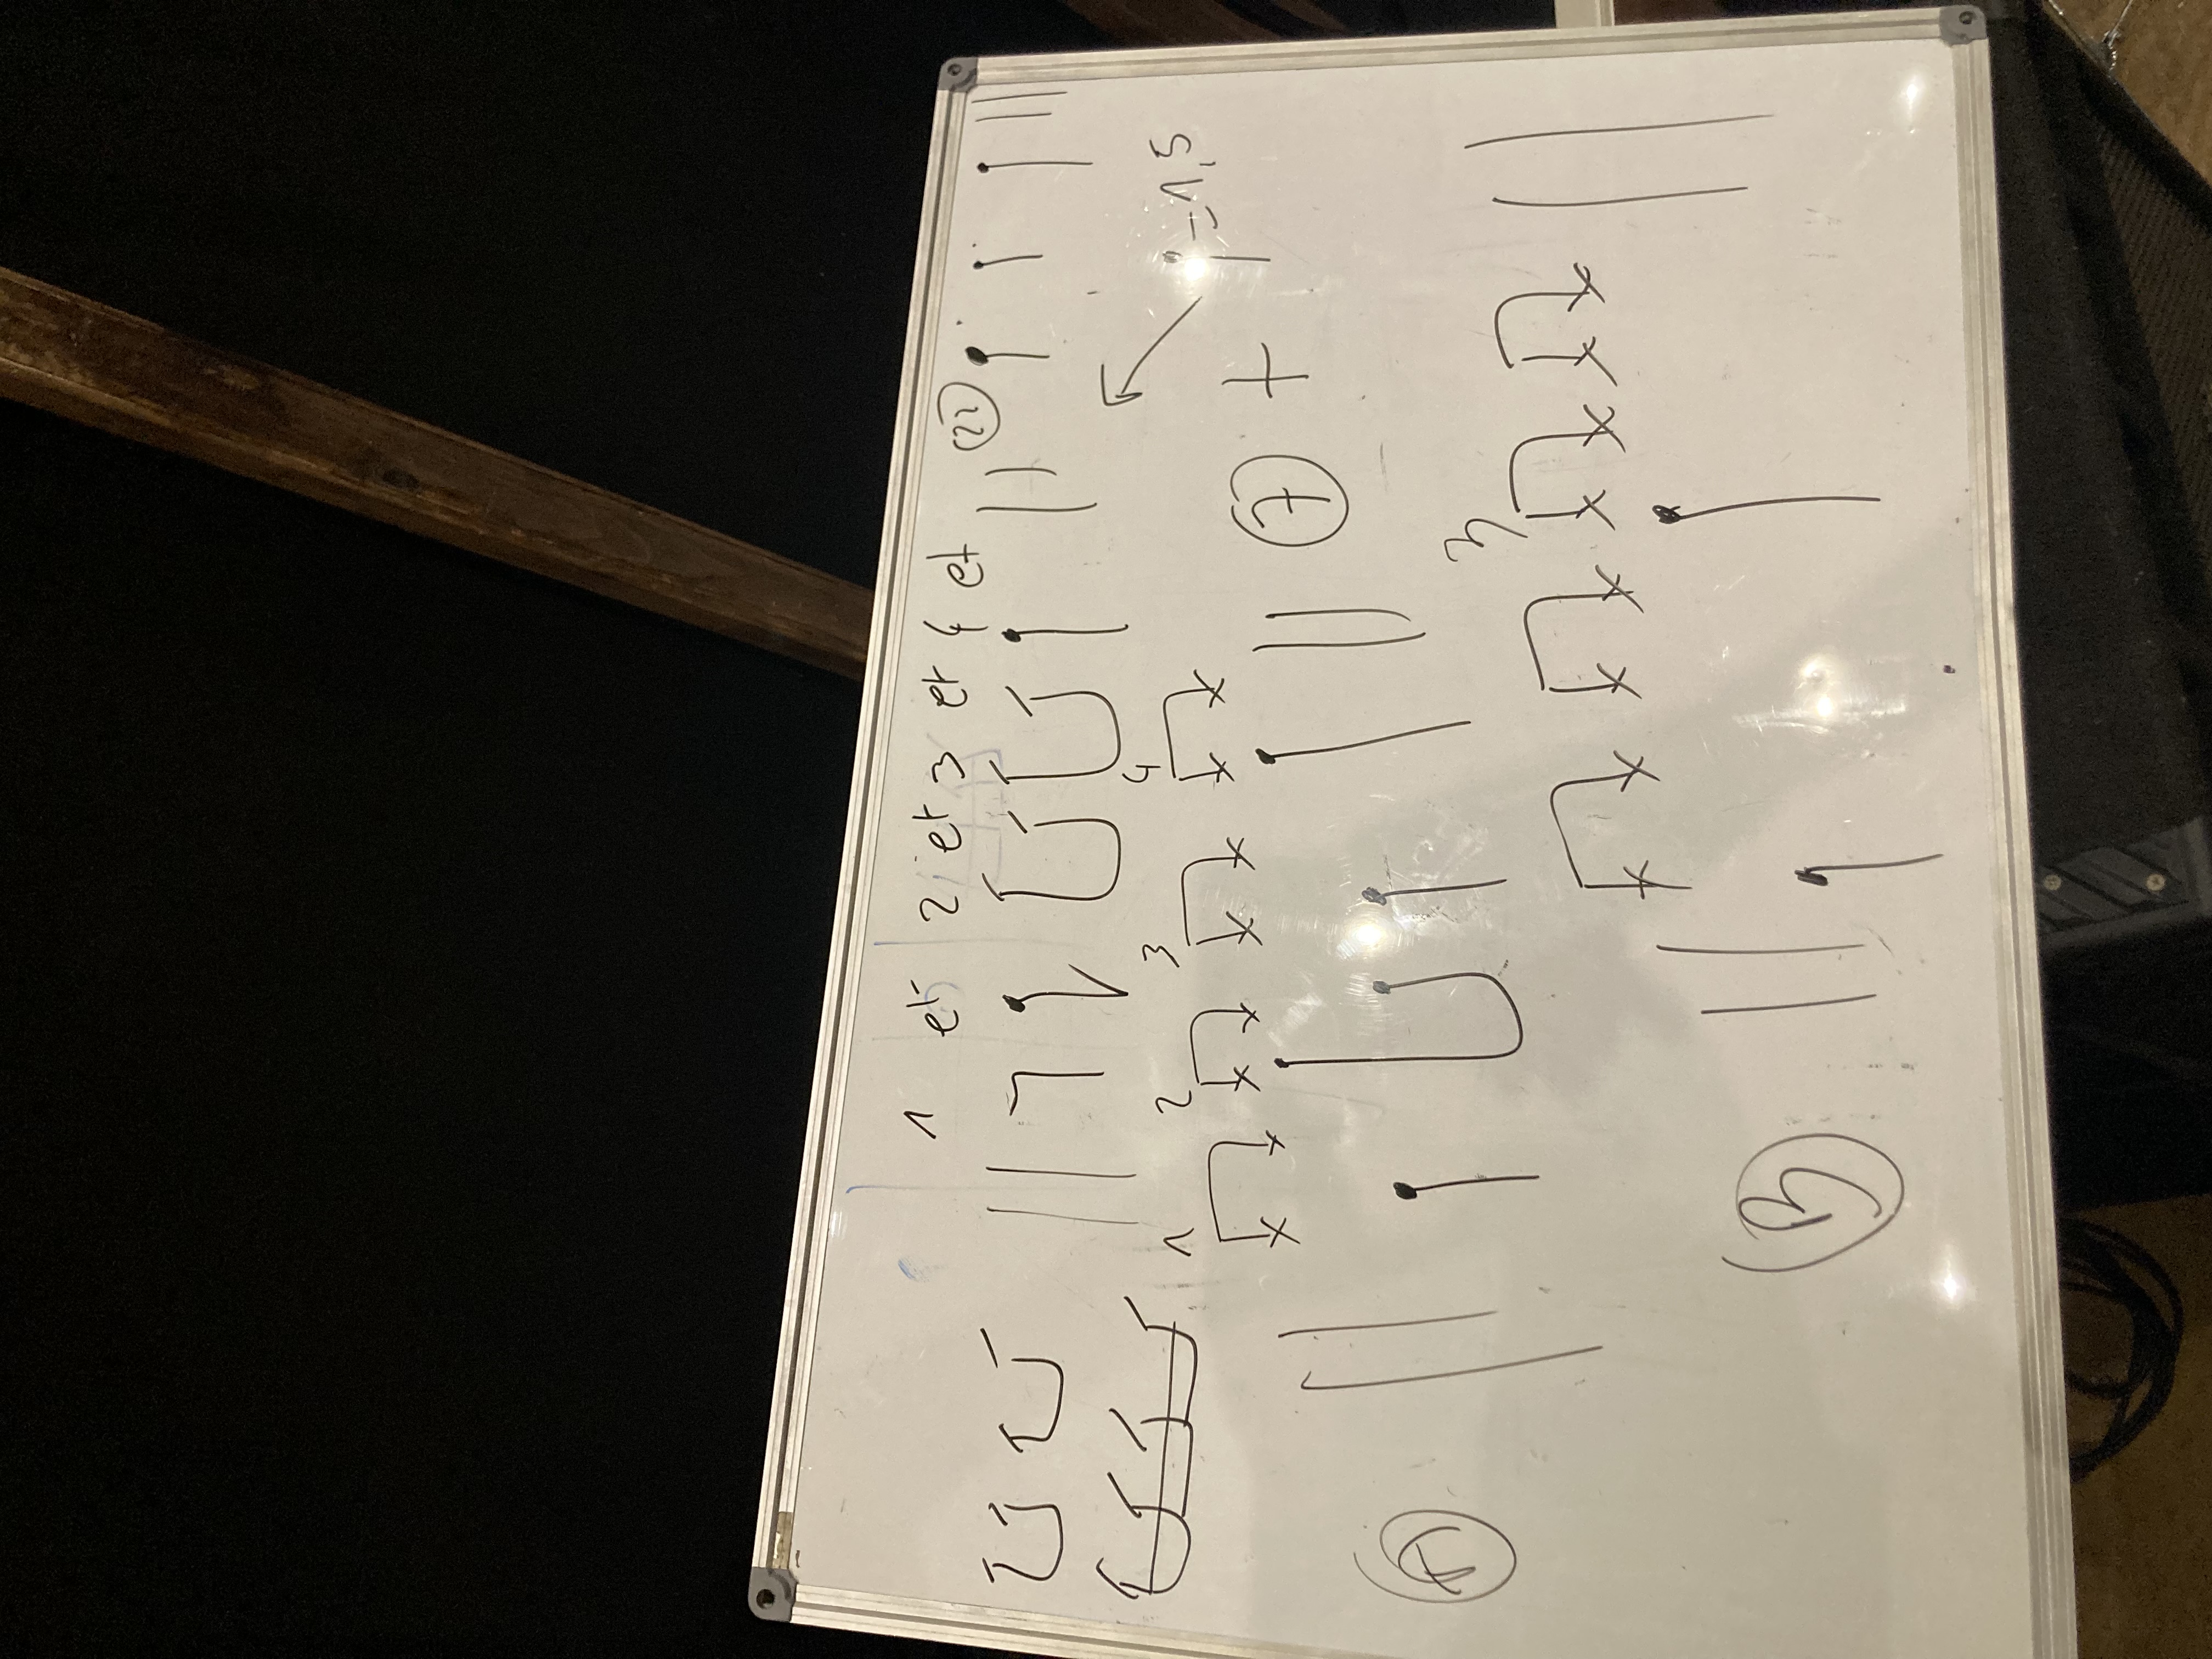 1 et 2 et 3 et 4 et
22
1 2 3 4
= 1,5
7 +
A
3
B